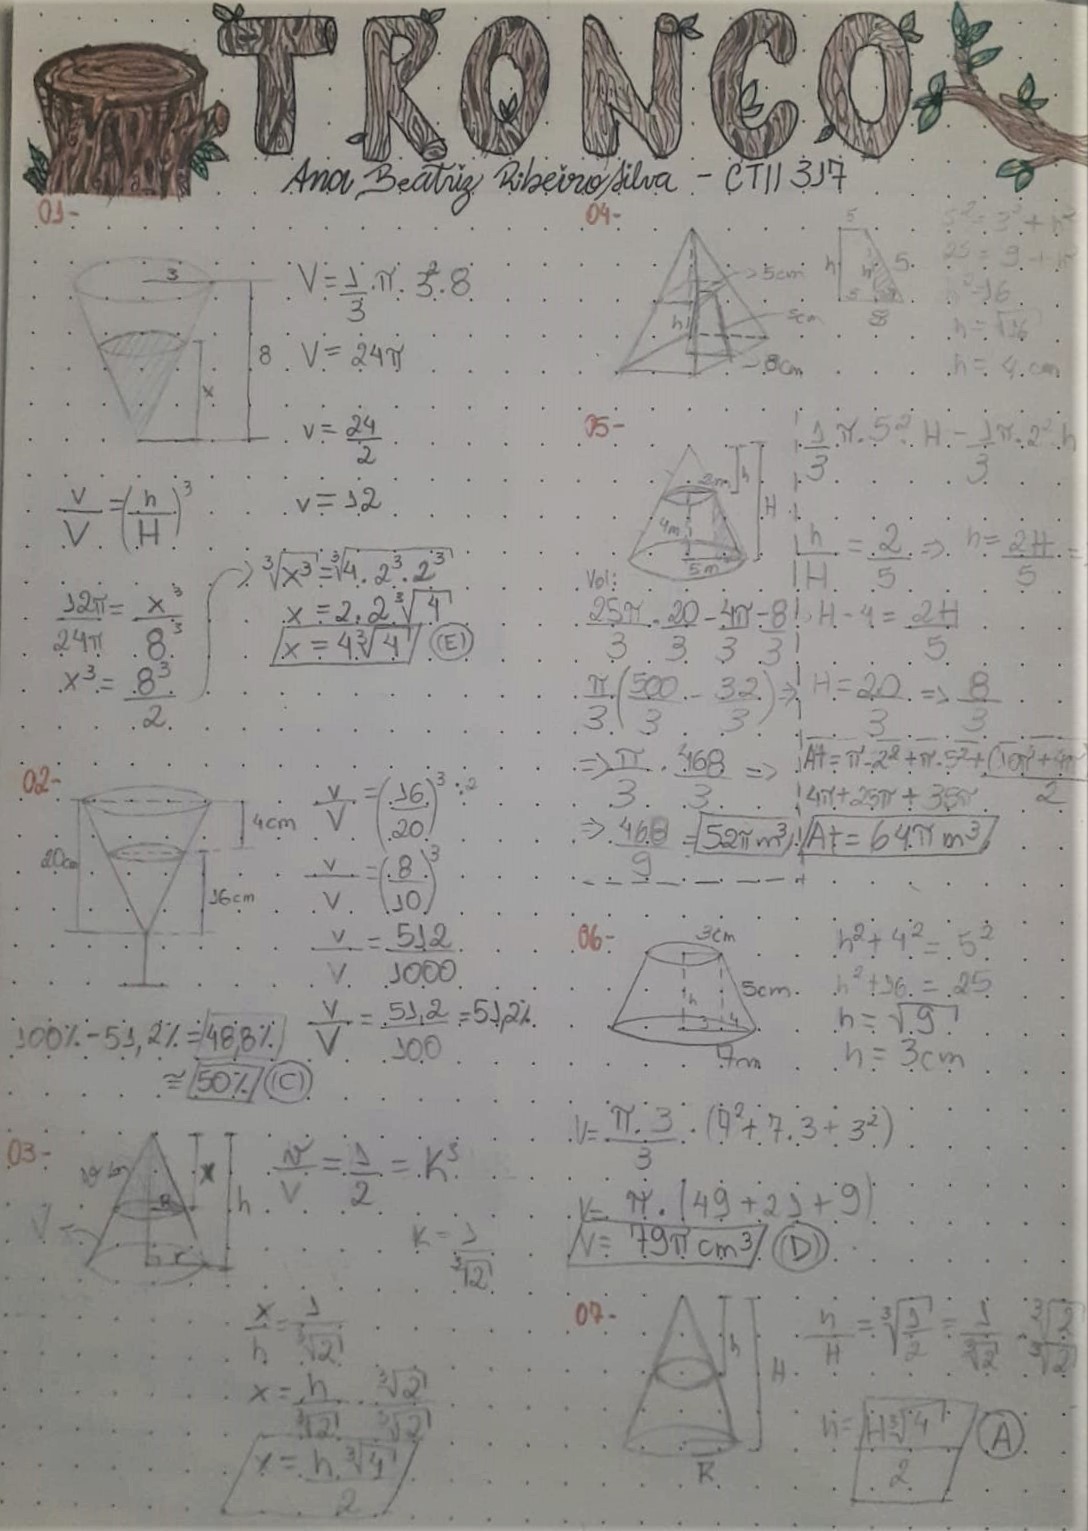 TRONCO
Ana Beatriz Ribeiro Silva - CTII 317
01-
3
8
x
V = 1/3 . π . 3² . 8
V = 24π
v = 24/2
v = 12
v/V = (h/H)³
12π/24π = x³/8³
x³ = 8³/2
³√x³ = ³√4 . 2³ . 2³
x = 2 . 2 ³√4
x = 4 ³√4 (E)
02-
20cm
4cm
16cm
v/V = (16/20)³ :2
v/V = (8/10)³
v/V = 512/1000
v/V = 51,2/100 = 51,2%
100% - 51,2% = 48,8%
≅ 50% (C)
03-
x
h
R
r
v/V = 1/2 = K³
K = 1/³√2
x/h = 1/³√2
x = h/³√2 . ³√2/³√2
x = h ³√4/2
04-
5cm
5cm
8cm
h
5
h
5
8
5² = 3² + h²
25 = 9 + h²
h² = 16
h = √16
h = 4 cm
05-
2m
h
H
4m
5m
1/3 π . 5² H - 1/3 π . 2² . h
h/H = 2/5 ⇒ h = 2H/5
H - 4 = 2H/5
H = 20/3 ⇒ 8/3
Vol:
25π/3 . 20/3 - 4π/3 - 8/3
π/3 (500/3 - 32/3) ⇒
⇒ π/3 . 468/3 ⇒
⇒ 468/9 = 52π m³
At = π . 2² + π . 5² + (10π + 4π
2
4π + 25π + 35π
At = 64π m³
06-
3cm
5cm
h
3 4
7m
h² + 4² = 5²
h² + 16 = 25
h = √9
h = 3cm
V = π . 3/3 . (7² + 7 . 3 + 3²)
V = π . (49 + 21 + 9)
V = 79π cm³ (D)
07-
h
H
R
h/H = ³√1/2 = 1/³√2 . ³√2/³√2
h = H ³√4/2 (A)